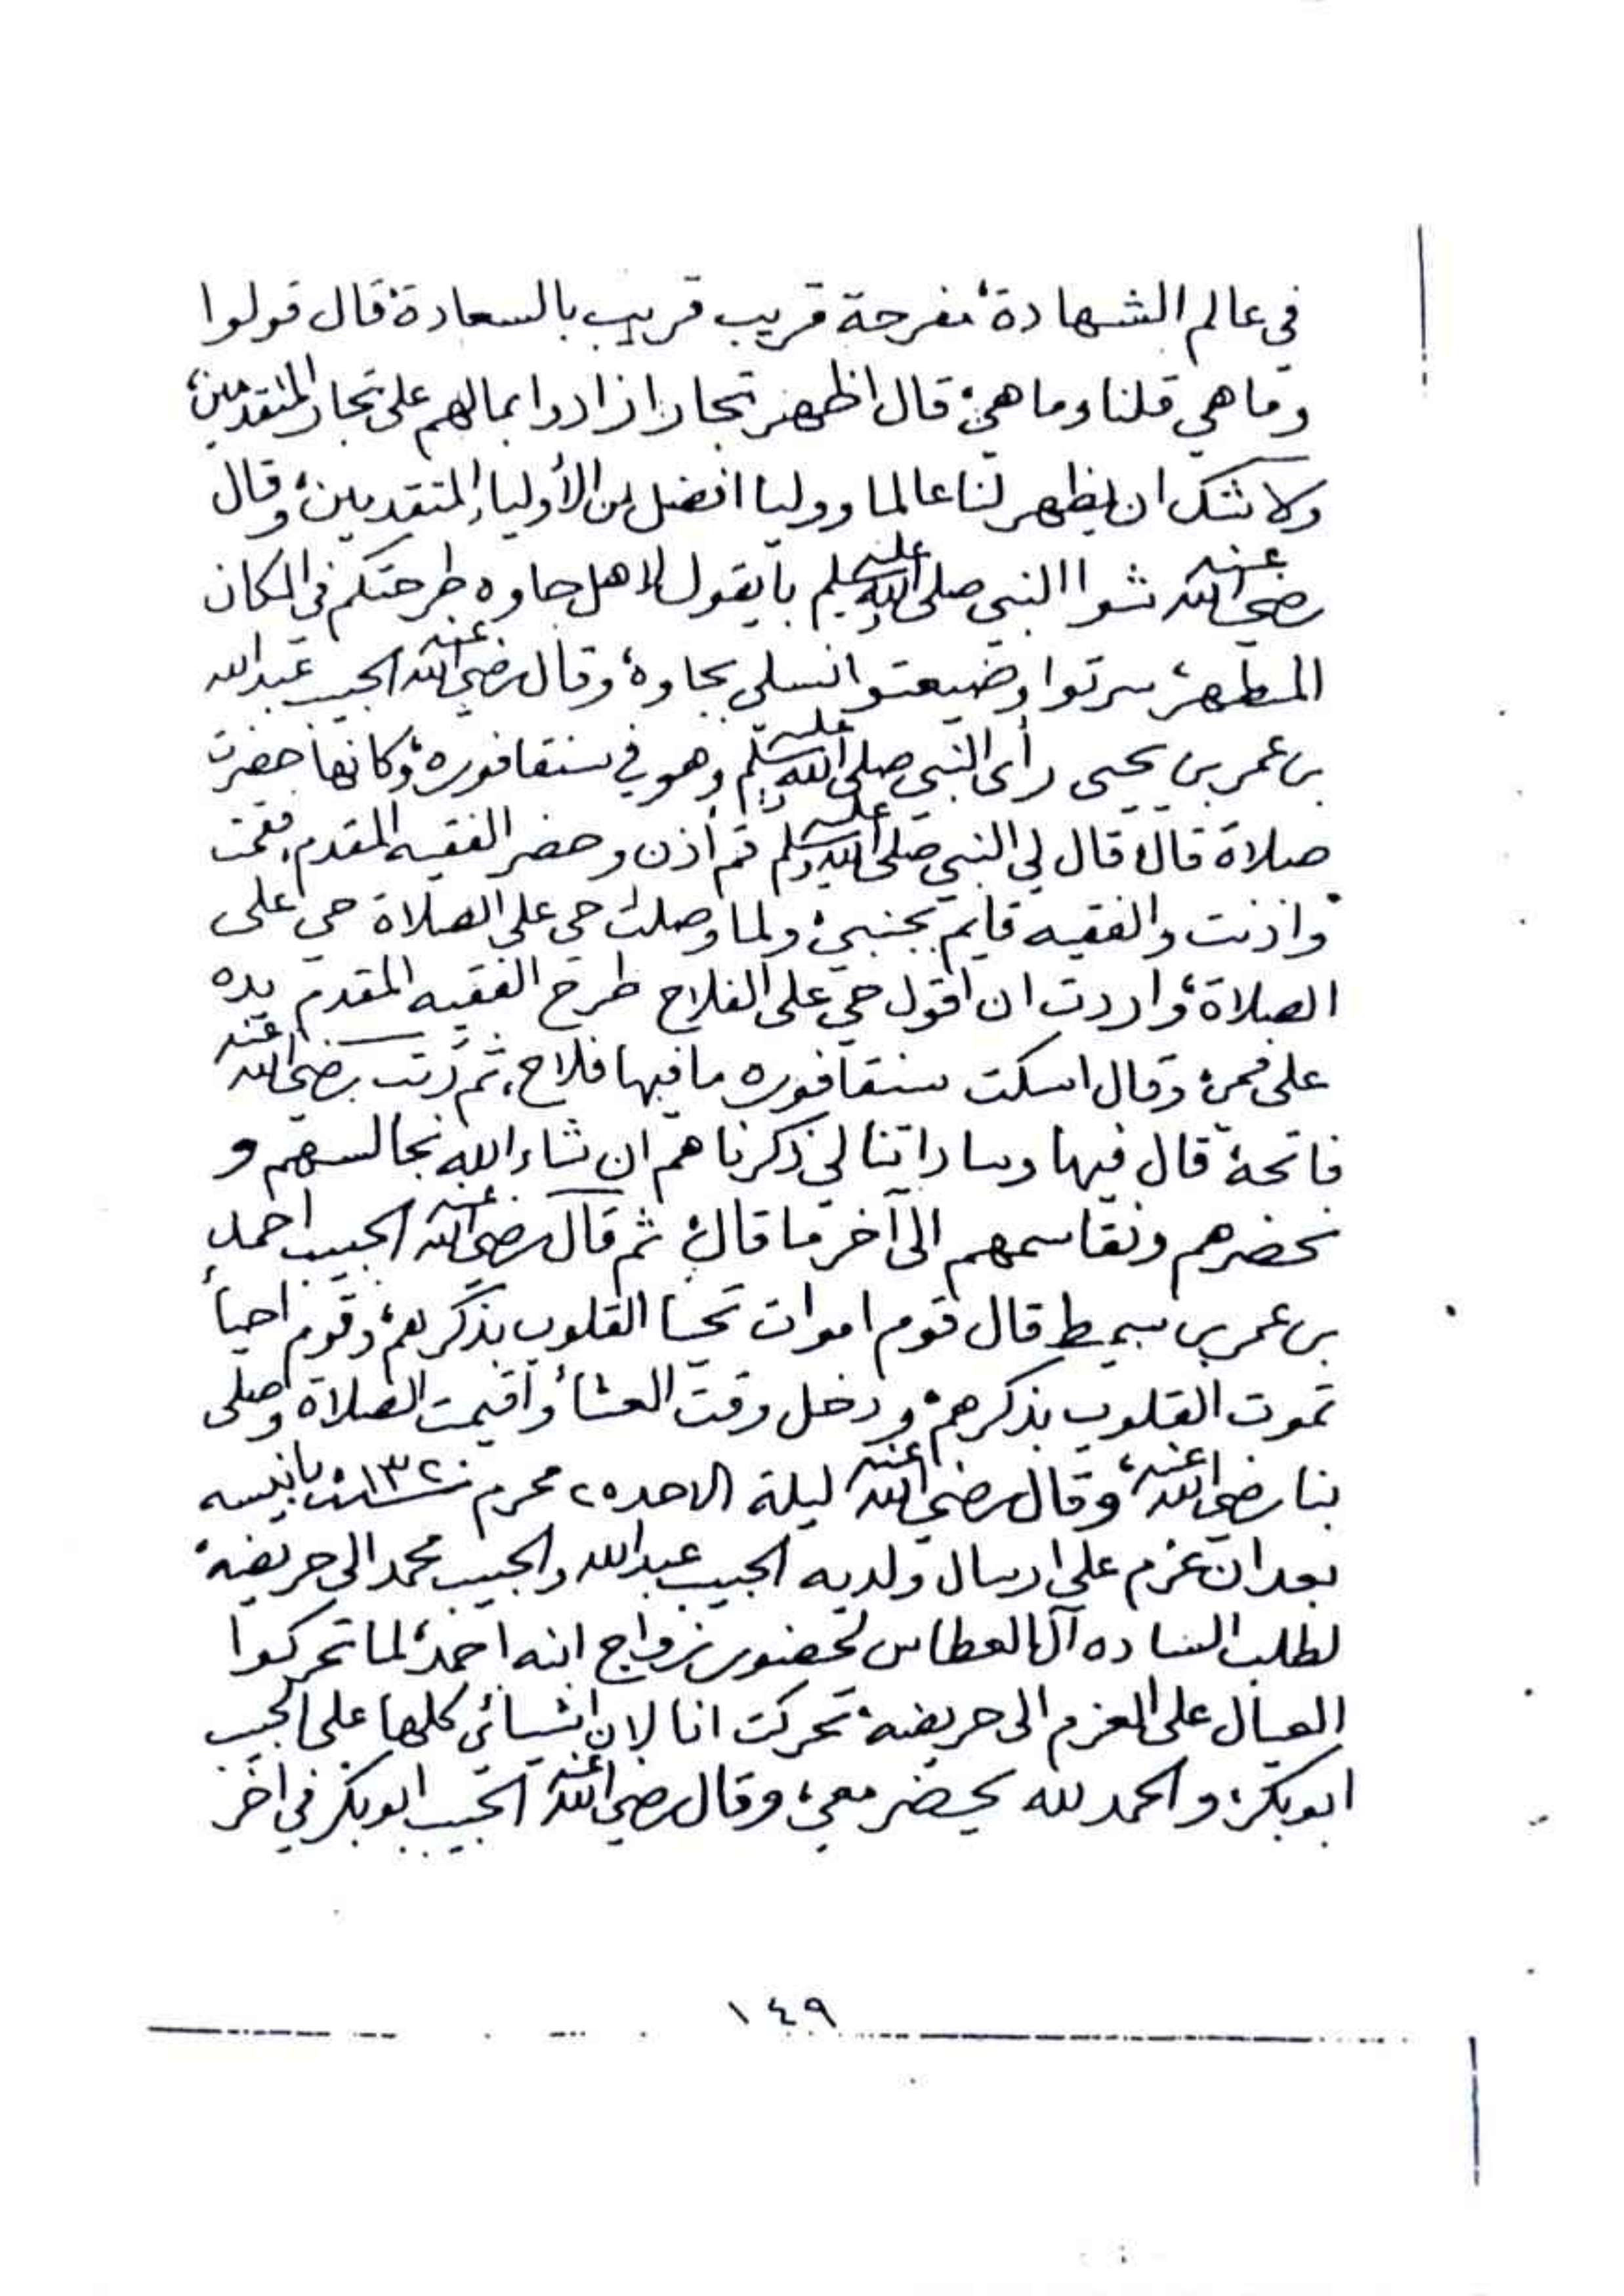 في عالم الشهادة، مفرحة قريب قريب بالسعادة، قال قولوا
وما هي قلنا وما هي، قال اظهر تجارا زادوا بمالهم على تجار المتقدمين،
ولا شك ان يظهر لنا عالما ووليا افضل من الأولياء المتقدمين، وقال
رضي الله عنه شوا النبي صلى الله عليه وسلم بايقول لاهل جاوه طرحتكم في المكان
المطهر، سرتوا وضيعتوا نسلي بجاوة، وقال رضي الله عنه الحبيب عبدالله
بن عمر بن يحيى رأى النبي صلى الله عليه وسلم وهو في سنقافوره، وكانها حضرت
صلاة قال، قال لي النبي صلى الله عليه وسلم قم أذن وحضر الفقيه المقدم، فقمت
واذنت والفقيه قايم بجنبي، ولما وصلت حي على الصلاة حي على
الصلاة، واردت ان اقول حي على الفلاح طرح الفقيه المقدم يده
على فمي، وقال اسكت سنقافوره ما فيها فلاح، ثم رتب رضي الله عنه
فاتحة، قال فيها وساداتنا لي ذكرناهم ان شاء الله نجالسهم و
نحضرهم ونقاسمهم الى آخر ما قال، ثم قال رضي الله عنه الحبيب احمد
بن عمر بن سميط قال قوم اموات تحيا القلوب بذكرهم، وقوم احياء
تموت القلوب بذكرهم، ودخل وقت العشاء واقيمت الصلاة وصلى
بنا رضي الله عنه، وقال رضي الله عنه ليلة الاحد ٢٥ محرم سنة ١٣٢٠ بانيسه
بعد ان عزم على ارسال ولديه الحبيب عبدالله والحبيب محمد الى حريضه،
لطلب الساده آل العطاس لحضور زواج ابنه احمد، لما تحركوا
العيال على العزم الى حريضه، تحركت انا لان اشيائي كلها على الحبيب
ابوبكر، والحمد لله يحضر معي، وقال رضي الله عنه الحبيب ابوبكر في آخر
١٤٩